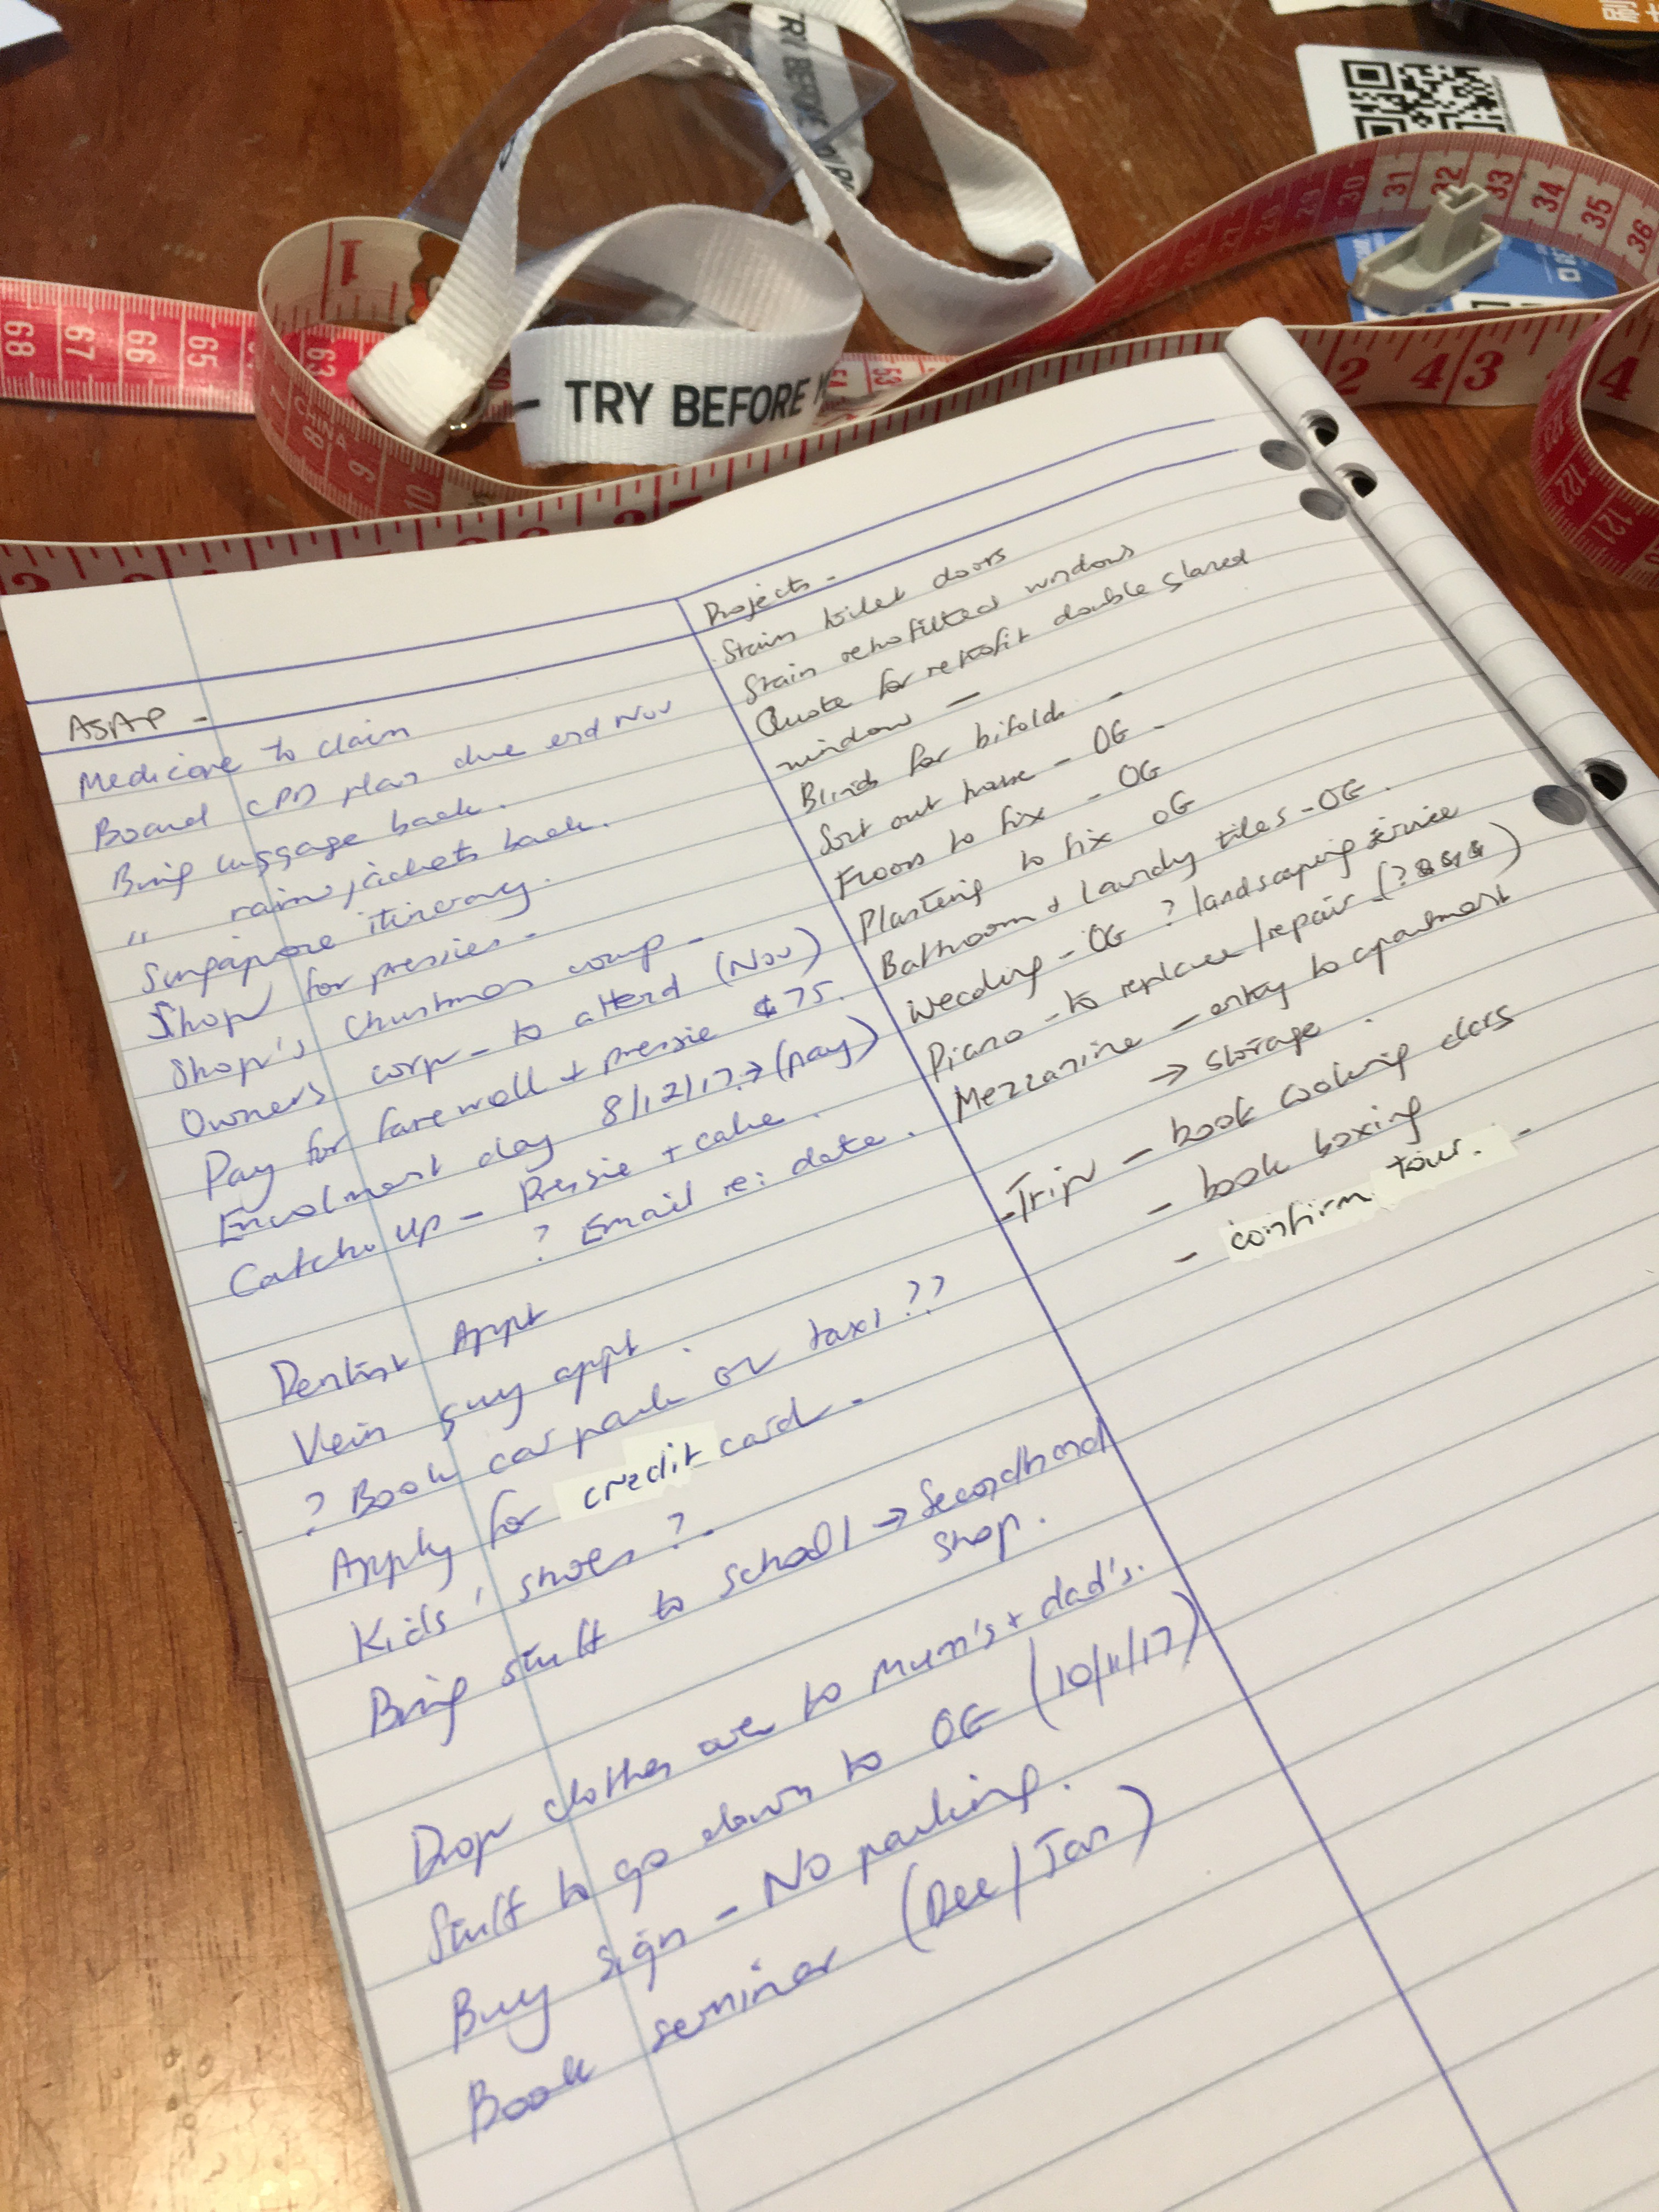 TRY BEFORE
TRY BEFORE
CHINA
ASAP -
Medicare to claim
Board CPD plan due end Nov
Bring luggage back.
" rain jackets back.
Singapore itinerary.
Shop for pressies -
Shop's Christmas comp -
Owners corp - to attend (Nov)
Pay for farewell + pressie $75.
Enrolment day 8/12/17 → (pay)
Catch up - Pressie + cake.
? Email re: date.
Dentist Appt
Vein guy appt.
? Book car park or taxi ??
Apply for credit card -
Kids' shoes? -
Bring stuff to school → Secondhand
shop.
Drop clothes over to Mum's + dad's.
Stuff to go down to OG (10/11/17)
Buy sign - No parking.
Book seminar (Dec/Jan)
Projects -
Stain toilet doors
Stain retrofitted windows
Quote for retrofit double glazed
window -
Blinds for bifolds -
Sort out home - OG -
Floors to fix - OG
Plastering to fix OG
Bathroom + laundry tiles - OG.
Weeding - OG ? landscaping service
Piano - to replace/repair - (? $$$)
Mezzanine - entry to apartment
→ storage.
- Trip - book cooking class
- book boxing
- confirm tour. -